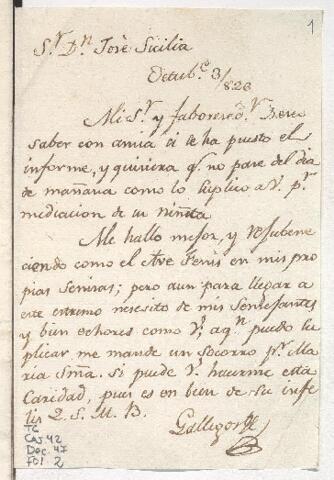 1
S.r D.n José Sicilia
Octub.e 3/826
Mi S.r y faborered.r Deseo
saber con ancia si se ha puesto el
informe, y quiciera q.e no pase del dia
de mañana como lo suplico a V. p.r
mediacion de su niñita
Me hallo mejor, y rejubene
ciendo como el Ave Fenis en mis pro
pias senisas; pero aun para llegar a
este estremo nesesito de mis
y bien echores como V, a q.n puedo su
plicar me mande un socorro p.r Ma
ria Sma. si puede V. haserme esta
Caridad, pues es en bien de su infe
lis Q. S. M. B.
Gallegos
TC
CAJ 42
Doc. 47
Fol 2